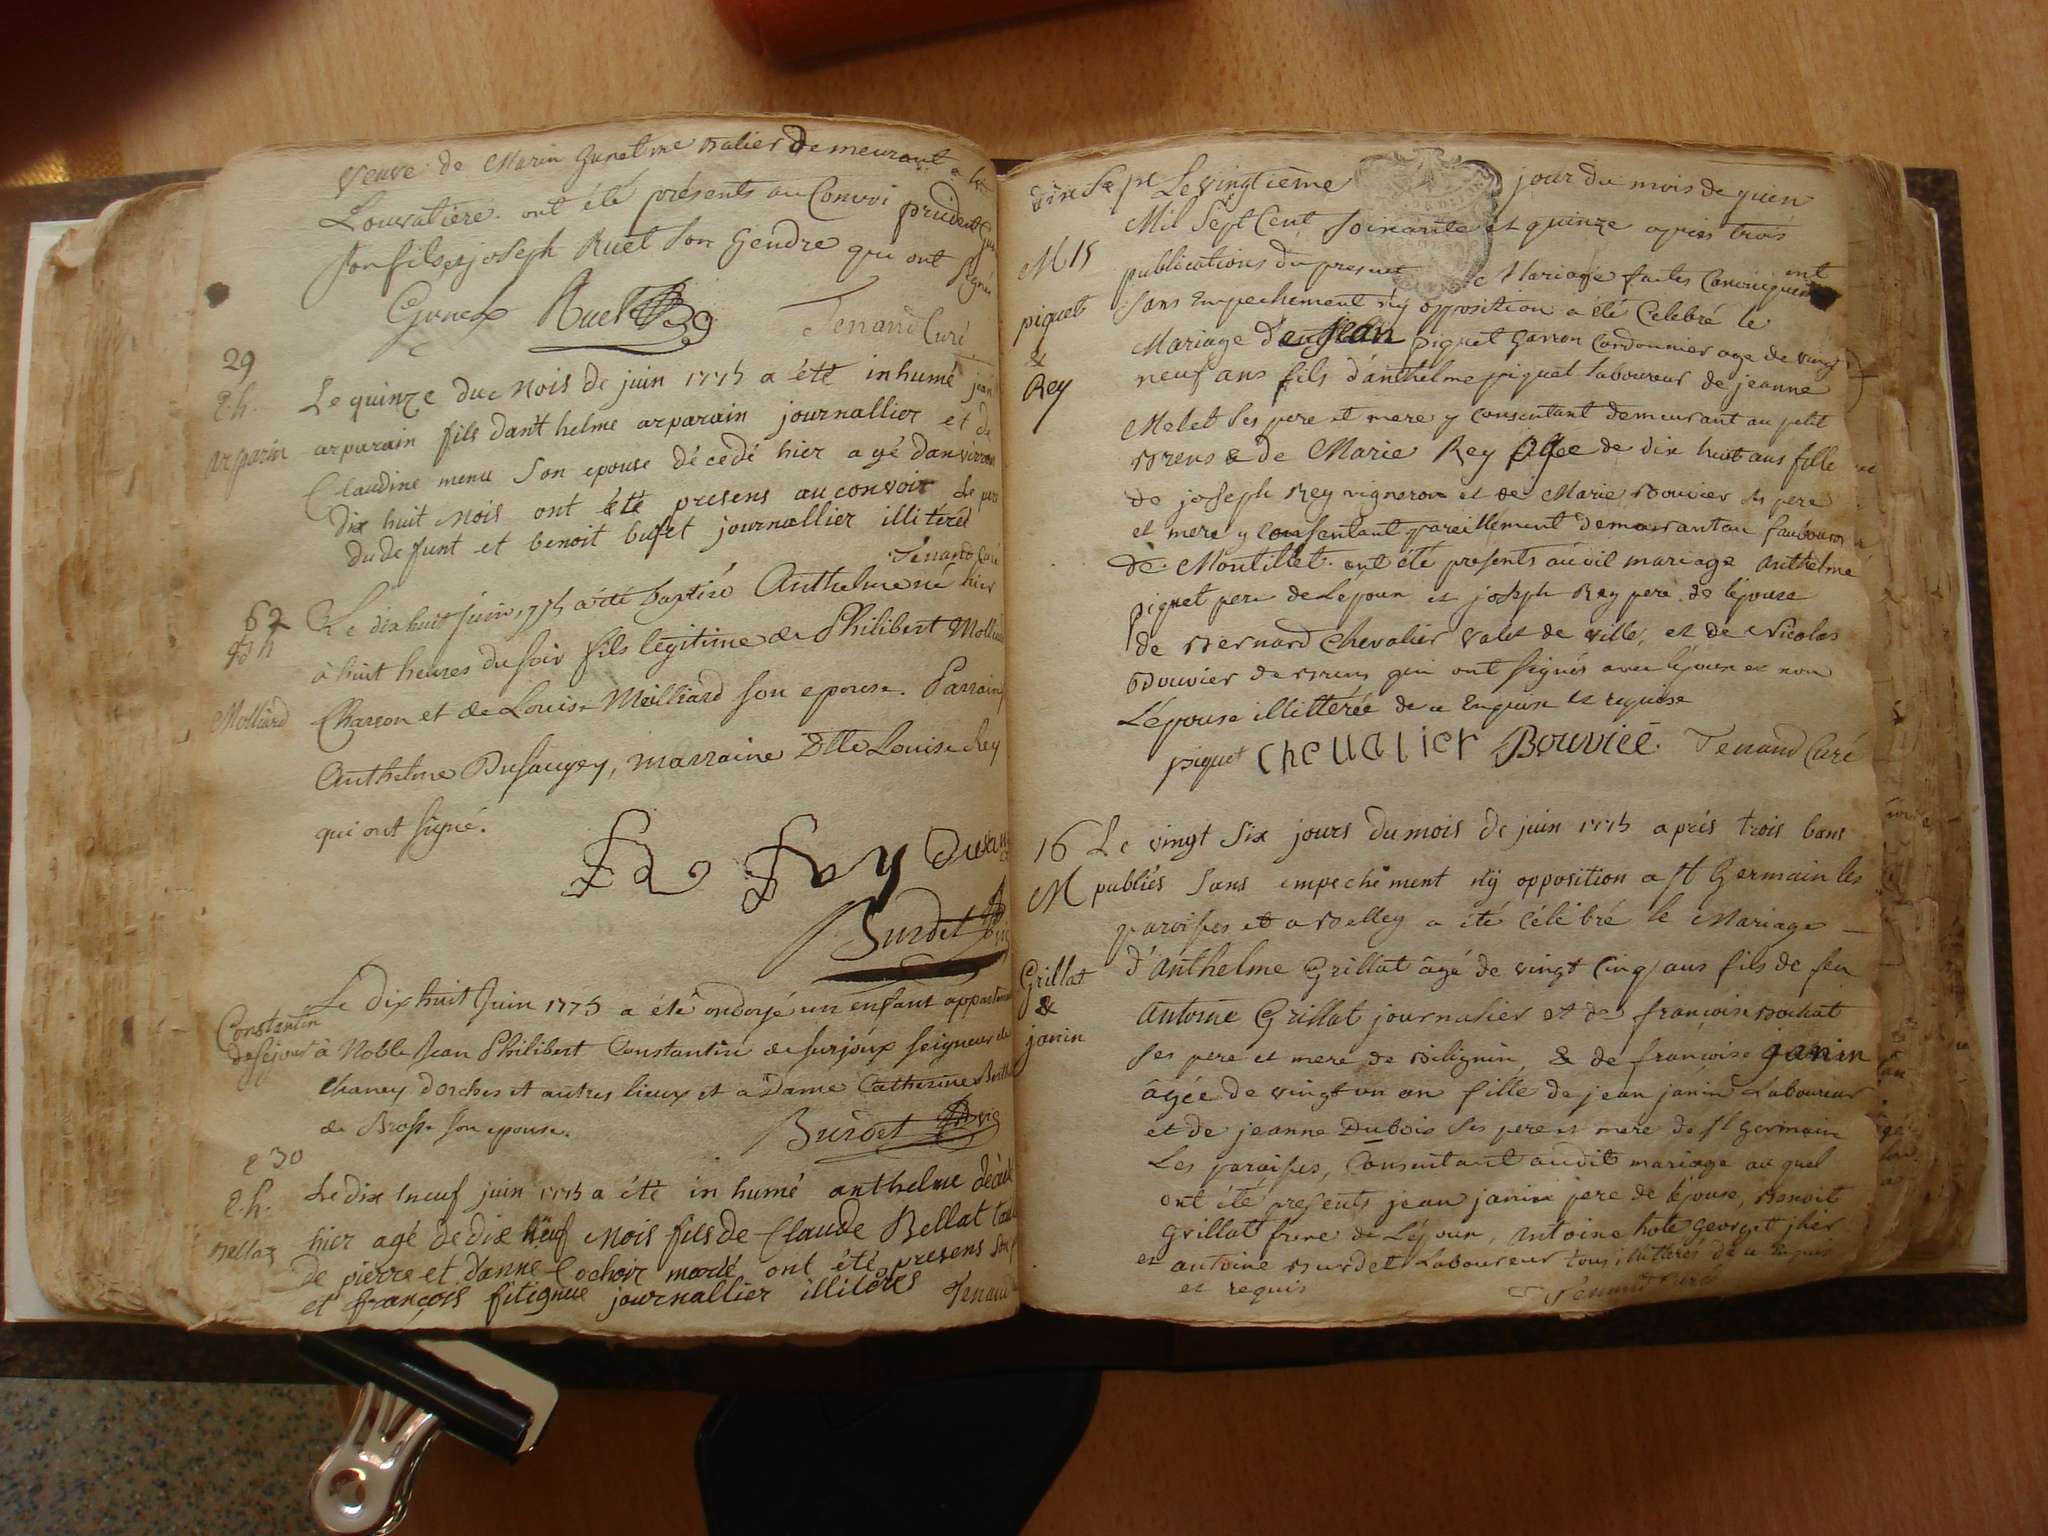 veuve de Marin Gunet me ratier demeurant a la
Louvatiere ont été présents au Convoi prudent
son fils et joseph Ruet son Gendre qui ont signés
Gunet Ruet Tenand Curé
29
e.h.
arparin
Le quinze duc mois de juin 1775 a été inhumé jean
arparain fils dant helme arparain journallier et de
Claudine menu son epouse décédé hier agé danviron
dix huit mois ont été presens au convoir Le pere
du defunt et benoit bufet journallier illiterés
Tenand Curé
62
Molliard
Le dix huit juin 1775 a été baptisé Anthelme né hier
à huit heures du soir fils légitime de Philibert Molliard
Charron et de Louise Meilliard son epouse. Parrain
Anthelme Dusaugey, marraine Dlle Louise Rey
qui ont signé.
Burdet
Constantin
Le dix huit Juin 1775 a été ondoyé un enfant appartenant
à Noble Jean Philibert Constantin de surjoux seigneur de
Chaney dorches et autres lieux et a Dame Catherine
de Brosse son epouse.
Burdet
e 30
e.h.
Bellat
Le dix neuf juin 1775 a été in humé anthelme
hier agé de dix neuf mois fils de Claude Bellat
de pierre et danne Cochoir mariés ont été presens
et françois fitignieu journallier illiterés Tenand
dix Sept Le vingtieme jour du mois de juin
Mil Sept Cent soixante et quinze après trois
M 15
piquet
&
Rey
publications du presnet de Mariage faites
sans Empechement ny opposition a été Celebré le
Mariage Jean piquet Garson Cordonnier age de vingt
neuf ans fils d'anthelme piquet Laboureur de jeanne
Melet ses pere et mere y consentant demeurant au petit
Brens & de Marie Rey Agée de dix huit ans fille
de joseph Rey vigneron et de Marie Bouvier ses pere
et mere y consentant pareillement demeurant au faubourg
de Montillet. ont été presents audit mariage Anthelme
piquet pere de Lepoux et joseph Rey pere de lépouse
de Bernard Chevalier valet de ville, et de Nicolas
Bouvier de Brens qui ont signés avec lépoux et non
Lépouse illittérée de ce Enquise et requise
piquet chevalier Bouvier Tenand Curé
16
M
Grillat
&
janin
Le vingt six jours du mois de juin 1775 aprés trois bans
publiés sans empechement ny opposition a St Germain les
paroisses et a Belley a été célébré le Mariage
d'Anthelme Grillat âgé de vingt Cinq ans fils de feu
Antoine Grillat journalier et de françoise Bochat
ses pere et mere de Billignin & de françoise janin
âgée de vingt un an fille de jean janin Laboureur
et de jeanne Dubois ses pere et mere de st Germain
Les paroisses, Consentant audit mariage auquel
ont été presents jean janin pere de lépouse, Benoit
Grillat frere de Lépoux, Antoine hote
et antoine Burdet Laboureur tous illitterés de ce Enquis
et requis Tenand Curé